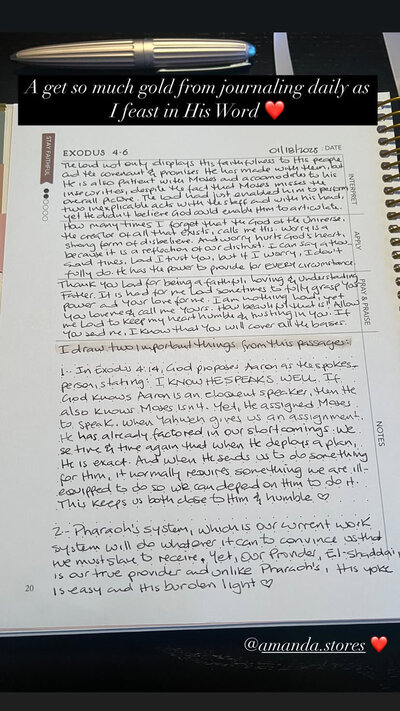 A get so much gold from journaling daily as
I feast in His Word ❤️
STAY FAITHFUL
EXODUS 4-6
01/18/2025 : DATE
The Lord not only displays His faithfulness to His people
and the covenant & promises He has made with them, but
He is also patient with Moses and accomodates to his
insecurities, despite the fact that Moses misses the
overall picture. The Lord had just enabled him to perform
two inexplicable acts with the staff and with his hand,
yet He didn't believe God could enable Him to articulate.
INTERPRET
How many times I forget that the God of the Universe,
the creator of all that exists, calls me His. Worry is a
strong form of disbelieve. And worry hurts God's heart,
because it is a reflection of our distrust. I can say a thou
sand times, Lord I trust you, but if I worry, I don't
fully do. He has the power to provide for every circumstance.
APPLY
Thank you Lord for being a faithful, loving & understanding
Father. It is hard for me Lord sometimes to fully grasp your
power and your love for me. I am nothing Lord, yet
you love me & call me Yours. How beautiful that is! Allow
me Lord to keep my heart humble & trusting in You. If
You send me, I know that You will cover all the bases.
PRAY & PRAISE
I draw two important things from this passages:
1- In Exodus 4:14, God proposes Aaron as the spokes-
person, stating: I KNOW HE SPEAKS WELL. If
God knows Aaron is an eloquent speaker, then He
also knows Moses isn't. Yet, He assigned Moses
to speak. When Yahweh gives us an assignment,
He has already factored in our shortcomings. We
se time & time again that when He deploys a plan,
He is exact. And when He sends us to do something
for Him, it normally requires something we are ill-
equipped to do so we can depend on Him to do it.
This keeps us both close to Him & humble ♡
NOTES
2- Pharaoh's system, which is our current work
system will do whatever it can to convince us that
we must slave to receive. Yet, Our Provider, El-Shaddai,
is our true provider and unlike Pharaoh's, His yoke
is easy and His burden light ♡
20
@amanda.stores ❤️